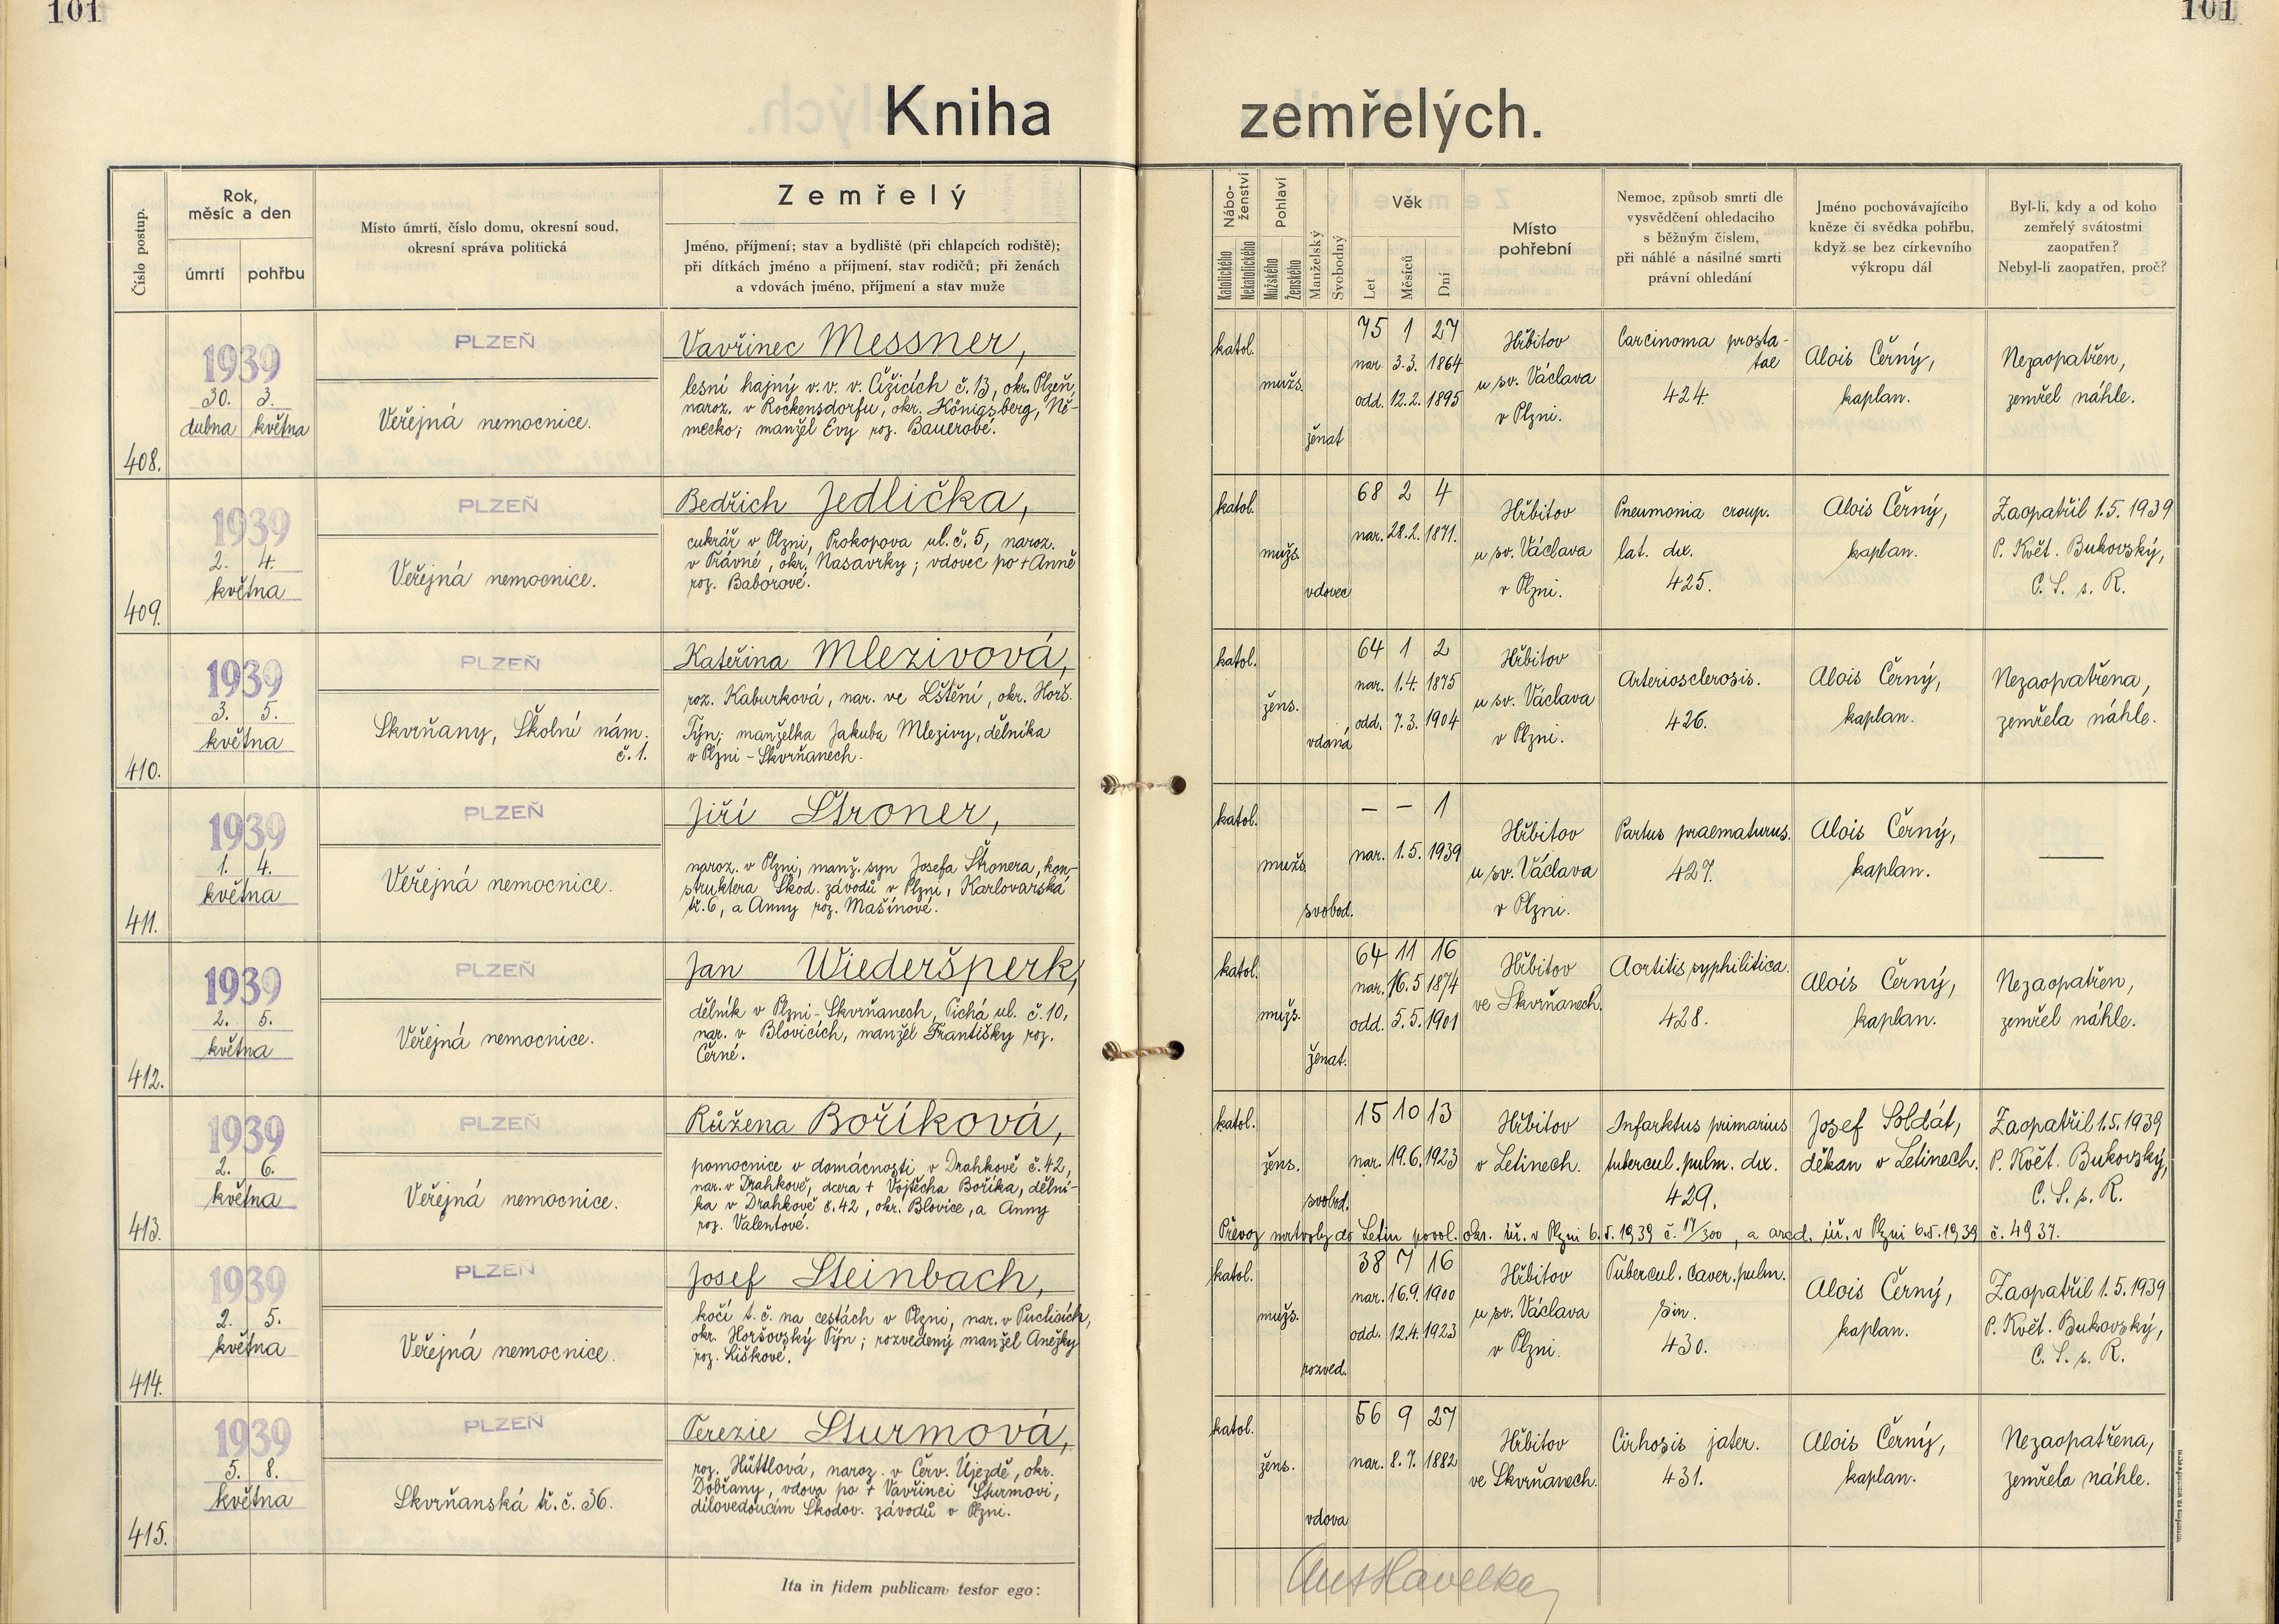 101
101
Kniha zemřelých.
Číslo postup.
Rok,
měsíc a den
úmrtí
pohřbu
Místo úmrtí, číslo domu, okresní soud,
okresní správa politická
Zemřelý
Jméno, příjmení; stav a bydliště (při chlapcích rodiště);
při dítkách jméno a příjmení, stav rodičů; při ženách
a vdovách jméno, příjmení a stav muže
Nábo-
ženství
Katolického
Nekatolického
Pohlaví
Mužského
Ženského
Manželský
Svobodný
Věk
Let
Měsíců
Dní
Místo
pohřební
Nemoc, způsob smrti dle
vysvědčení ohledacího
s běžným číslem,
při náhlé a násilné smrti
právní ohledání
Jméno pochovávajícího
kněze či svědka pohřbu,
když se bez církevního
výkropu dál
Byl-li, kdy a od koho
zemřelý svátostmi
zaopatřen?
Nebyl-li zaopatřen, proč?
408.
1939
30. 3.
dubna května
PLZEŇ
Veřejná nemocnice.
Vavřinec Messner,
lesní hajný v. v. v Čižicích č. 13, okr. Plzeň,
naroz. v Rockensdorfu, okr. Königsberg, Ně-
mecko; manžel Evy roz. Bauerové.
katol.
mužs.
ženat
75 1 27
nar. 3.3. 1864
odd. 12.2. 1895
Hřbitov
u sv. Václava
v Plzni.
Carcinoma prosta-
tae
424.
Alois Černý,
kaplan.
Nezaopatřen,
zemřel náhle.
409.
1939
2. 4.
května
PLZEŇ
Veřejná nemocnice.
Bedřich Jedlička,
cukrář v Plzni, Prokopova ul. č. 5, naroz.
v Trávné, okr. Nasavrky; vdovec po + Anně
roz. Baborové.
katol.
mužs.
vdovec
68 2 4
nar. 28.2. 1871.
Hřbitov
u sv. Václava
v Plzni.
Pneumonia croup.
lat. dx.
425.
Alois Černý,
kaplan.
Zaopatřil 1.5. 1939
P. Květ. Bukovský,
C. S. s. R.
410.
1939
3. 5.
května
PLZEŇ
Skvrňany, Školní nám.
č. 1.
Kateřina Mlezivová,
roz. Kaburková, nar. ve Lštění, okr. Horš.
Týn; manželka Jakuba Mlezivy, dělníka
v Plzni - Skvrňanech.
katol.
žens.
vdaná
64 1 2
nar. 1.4. 1875
odd. 7.3. 1904
Hřbitov
u sv. Václava
v Plzni.
Arteriosclerosis.
426.
Alois Černý,
kaplan.
Nezaopatřena,
zemřela náhle.
411.
1939
1. 4.
května
PLZEŇ
Veřejná nemocnice.
Jiří Štroner,
naroz. v Plzni, manž. syn Josefa Štronera, kon-
struktera Škod. závodů v Plzni, Karlovarská
tř. 6, a Anny roz. Mašínové.
katol.
mužs.
svobod.
— — 1
nar. 1.5. 1939
Hřbitov
u sv. Václava
v Plzni.
Partus praematurus.
427.
Alois Černý,
kaplan.
—
412.
1939
2. 5.
května
PLZEŇ
Veřejná nemocnice.
Jan Wiederšperk,
dělník v Plzni - Skvrňanech, Tichá ul. č. 10,
nar. v Blovicích, manžel Františky roz.
Černé.
katol.
mužs.
ženat.
64 11 16
nar. 16.5 1874
odd. 5.5. 1901
Hřbitov
ve Skvrňanech.
Aortitis syphilitica.
428.
Alois Černý,
kaplan.
Nezaopatřen,
zemřel náhle.
413.
1939
2. 6.
května
PLZEŇ
Veřejná nemocnice.
Růžena Boříková,
pomocnice v domácnosti v Drahkově č. 42,
nar. v Drahkově, dcera + Vojtěcha Boříka, dělní-
ka v Drahkově č. 42, okr. Blovice, a Anny
roz. Valentové.
katol.
žens.
svobod.
15 10 13
nar. 19.6. 1923
Hřbitov
v Letinech.
Infarktus primarius
tubercul. pulm. dx.
429.
Josef Soldát,
děkan v Letinech.
Zaopatřil 1.5. 1939
P. Květ. Bukovský,
C. S. s. R.
Převoz mrtvoly do Letin povol. okr. úř. v Plzni 6.5. 1939 č. 17/300, a úř. v Plzni 6.5. 1939 č. 4937.
414.
1939
2. 5.
května
PLZEŇ
Veřejná nemocnice.
Josef Steinbach,
kočí t. č. na cestách v Plzni, nar. v Puclicích,
okr. Horšovský Týn; rozvedený manžel Anežky
roz. Liškové.
katol.
mužs.
rozved.
38 7 16
nar. 16.9. 1900
odd. 12.4. 1923
Hřbitov
u sv. Václava
v Plzni.
Tubercul. caver. pulm.
sin.
430.
Alois Černý,
kaplan.
Zaopatřil 1.5. 1939
P. Květ. Bukovský,
C. S. s. R.
415.
1939
5. 8.
května
PLZEŇ
Skvrňanská tř. č. 36.
Terezie Sturmová,
roz. Hüttlová, naroz. v Červ. Újezdě, okr.
Dobřany, vdova po + Vavřinci Sturmovi,
dílovedoucím Škodov. závodů v Plzni.
katol.
žens.
vdova
56 9 27
nar. 8.7. 1882
Hřbitov
ve Skvrňanech.
Cirhosis jater.
431.
Alois Černý,
kaplan.
Nezaopatřena,
zemřela náhle.
Ita in fidem publicam testor ego:
Ant Havelka